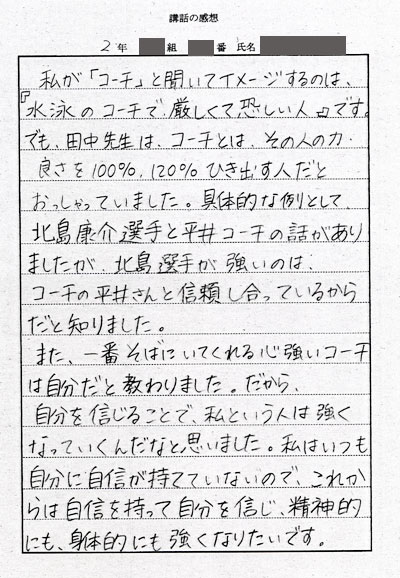 講話の感想
2年 組 番 氏名
私が「コーチ」と聞いてイメージするのは、
『水泳のコーチで厳しくて恐しい人』です。
でも、田中先生は、コーチとは、その人の力・
良さを100%、120%ひき出す人だと
おっしゃっていました。具体的な例として
北島康介選手と平井コーチの話があり
ましたが、北島選手が強いのは、
コーチの平井さんと信頼し合っているから
だと知りました。
また、一番そばにいてくれる心強いコーチ
は自分だと教わりました。だから、
自分を信じることで、私という人は強く
なっていくんだなと思いました。私はいつも
自分に自信が持てていないので、これか
らは自信を持って自分を信じ、精神的
にも、身体的にも強くなりたいです。